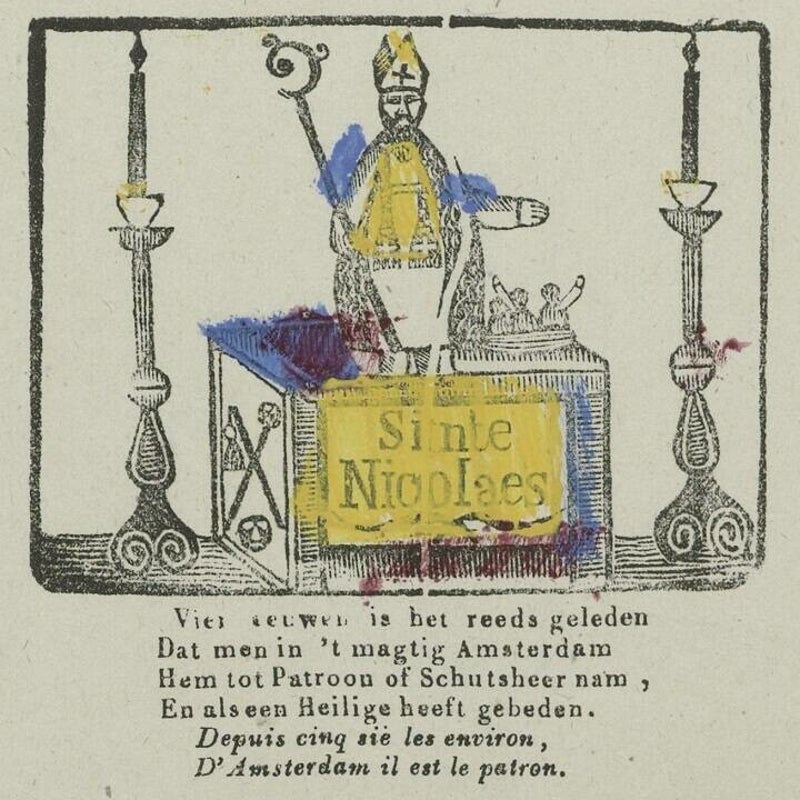 Sinte
Nicolaes
Vier eeuwen is het reeds geleden
Dat men in 't magtig Amsterdam
Hem tot Patroon of Schutsheer nam ,
En als een Heilige heeft gebeden.
Depuis cinq siè les environ,
D'Amsterdam il est le patron.